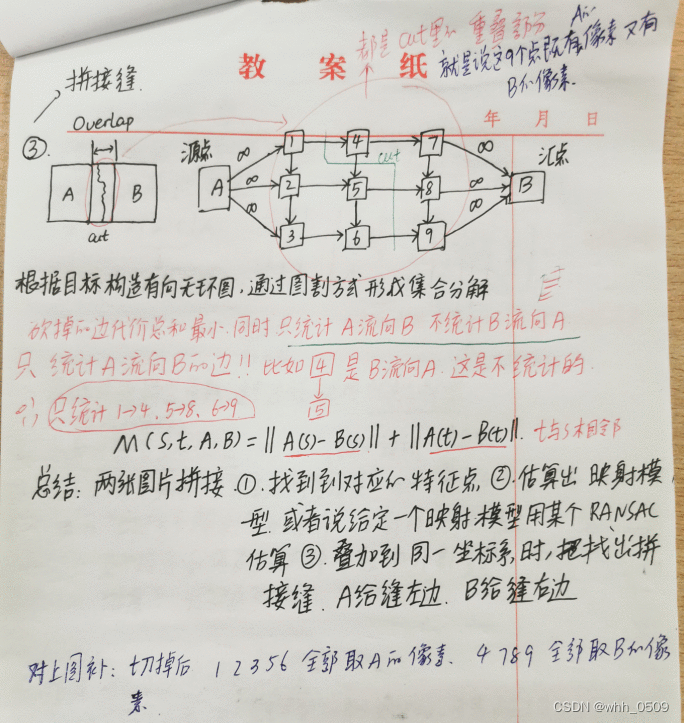 都是cut里的重叠部分
就是说这9个点既有A的像素又有
B的像素.
教案纸
拼接缝.
年 月 日
Overlap
③.
源点
汇点
A B
cut
A
∞ ∞ ∞
1 4 7
2 5 8
3 6 9
cut
∞ ∞ ∞
B
根据目标构造有向无环图,通过图割方式形成集合分解
砍掉的边代价总和最小.同时只统计A流向B 不统计B流向A
只统计A流向B的边!! 比如 4 是B流向A.这是不统计的.
5
只统计1→4、5→8、6→9
M(s,t,A,B)=||A(s)-B(s)||+||A(t)-B(t)||. t与s相邻
总结: 两张图片拼接 ①.找到到对应的特征点 ②.估算出映射模
型.或者说给定一个映射模型用某个RANSAC
估算 ③.叠加到同一坐标系时,把找出拼
接缝.A给缝左边.B给缝右边
对上图补: 切掉后 1 2 3 5 6 全部取A的像素、4 7 8 9 全部取B的像
素.
CSDN @whh_0509